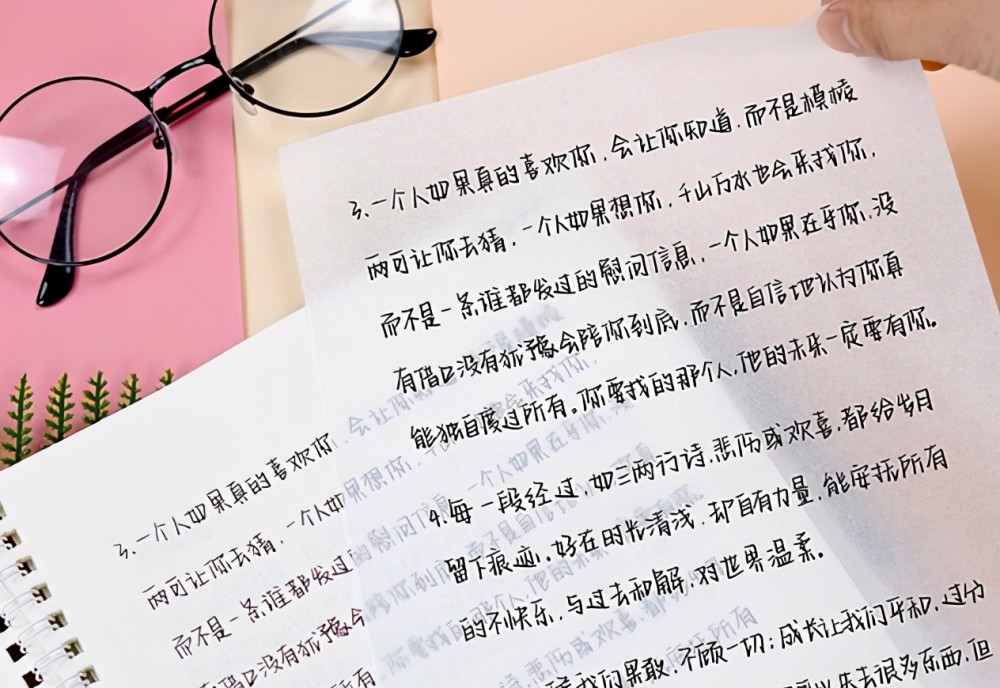 3、一个人如果真的喜欢你，会让你知道，而不是模棱
两可让你去猜，一个人如果想你，千山万水也会来找你，
而不是一条谁都发过的慰问信息，一个人如果在乎你，没
有借口没有犹豫会陪你到底，而不是自信地认为你真
能独自度过所有。你要找的那个人，他的未来一定要有你。
4、每一段经过，如三两行诗，悲伤或欢喜，都给岁月
留下痕迹，好在时光清浅，却自有力量，能安抚所有
的不快乐，与过去和解，对世界温柔。
我们果敢，不顾一切；成长让我们平和，过分
失去很多东西，但
3、一个人如果真的喜欢你，会让你
两可让你去猜，一个人如果想你，
而不是一条谁都发过
有借口没有犹豫会
所有